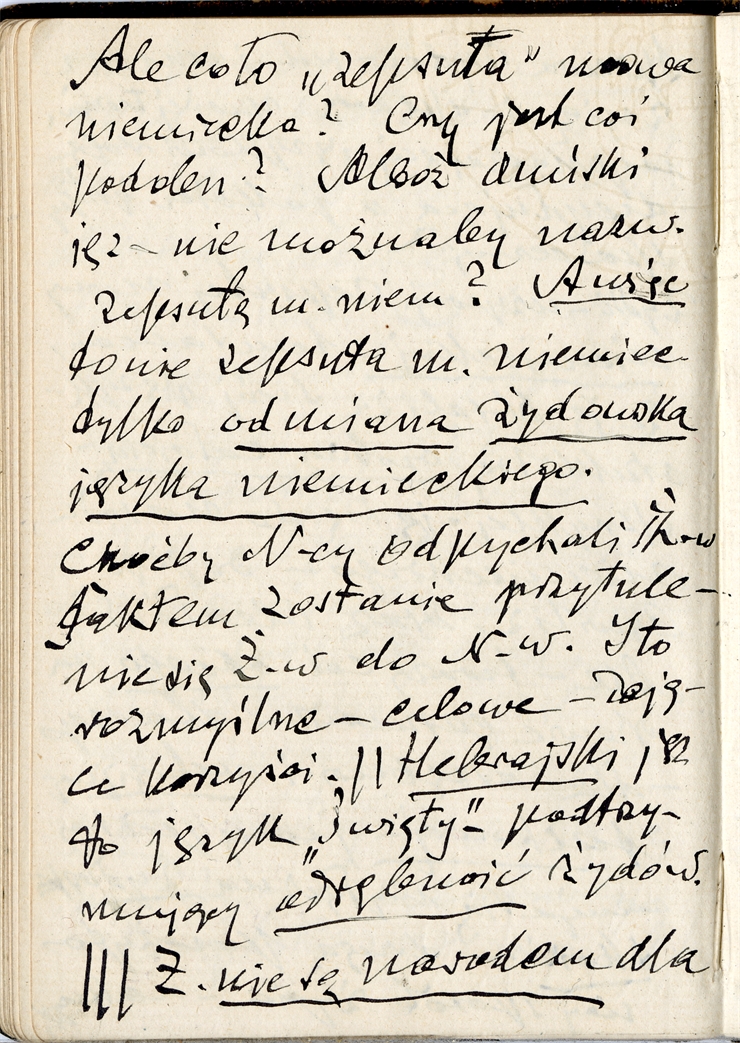 Ale coto „zepsuta" mowa
niemiecka? Czy jest coś
podobn? Alboż duński
jęz – nie możnaby nazw.
zepsutą m. niem? A więc
to nie zepsuta m. niemiec
tylko odmiana żydowska
języka niemieckiego.
Choćby N-cy odpychali Ż-w
faktem zostanie przytule-
nie się Ż-w do N-w. I to
rozmyślne – celowe – dają-
ce korzyści. || Hebrajski jęz
to język „święty" podtrzy-
mujący odrębność żydów.
||| Ż. nie są narodem dla